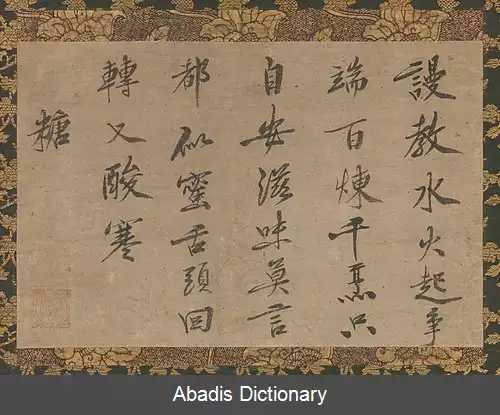 謾教水火起爭
端百煉千烹只
自安滋味莫言
都似蜜舌頭回
轉又酸寒
糖
Abadis Dictionary